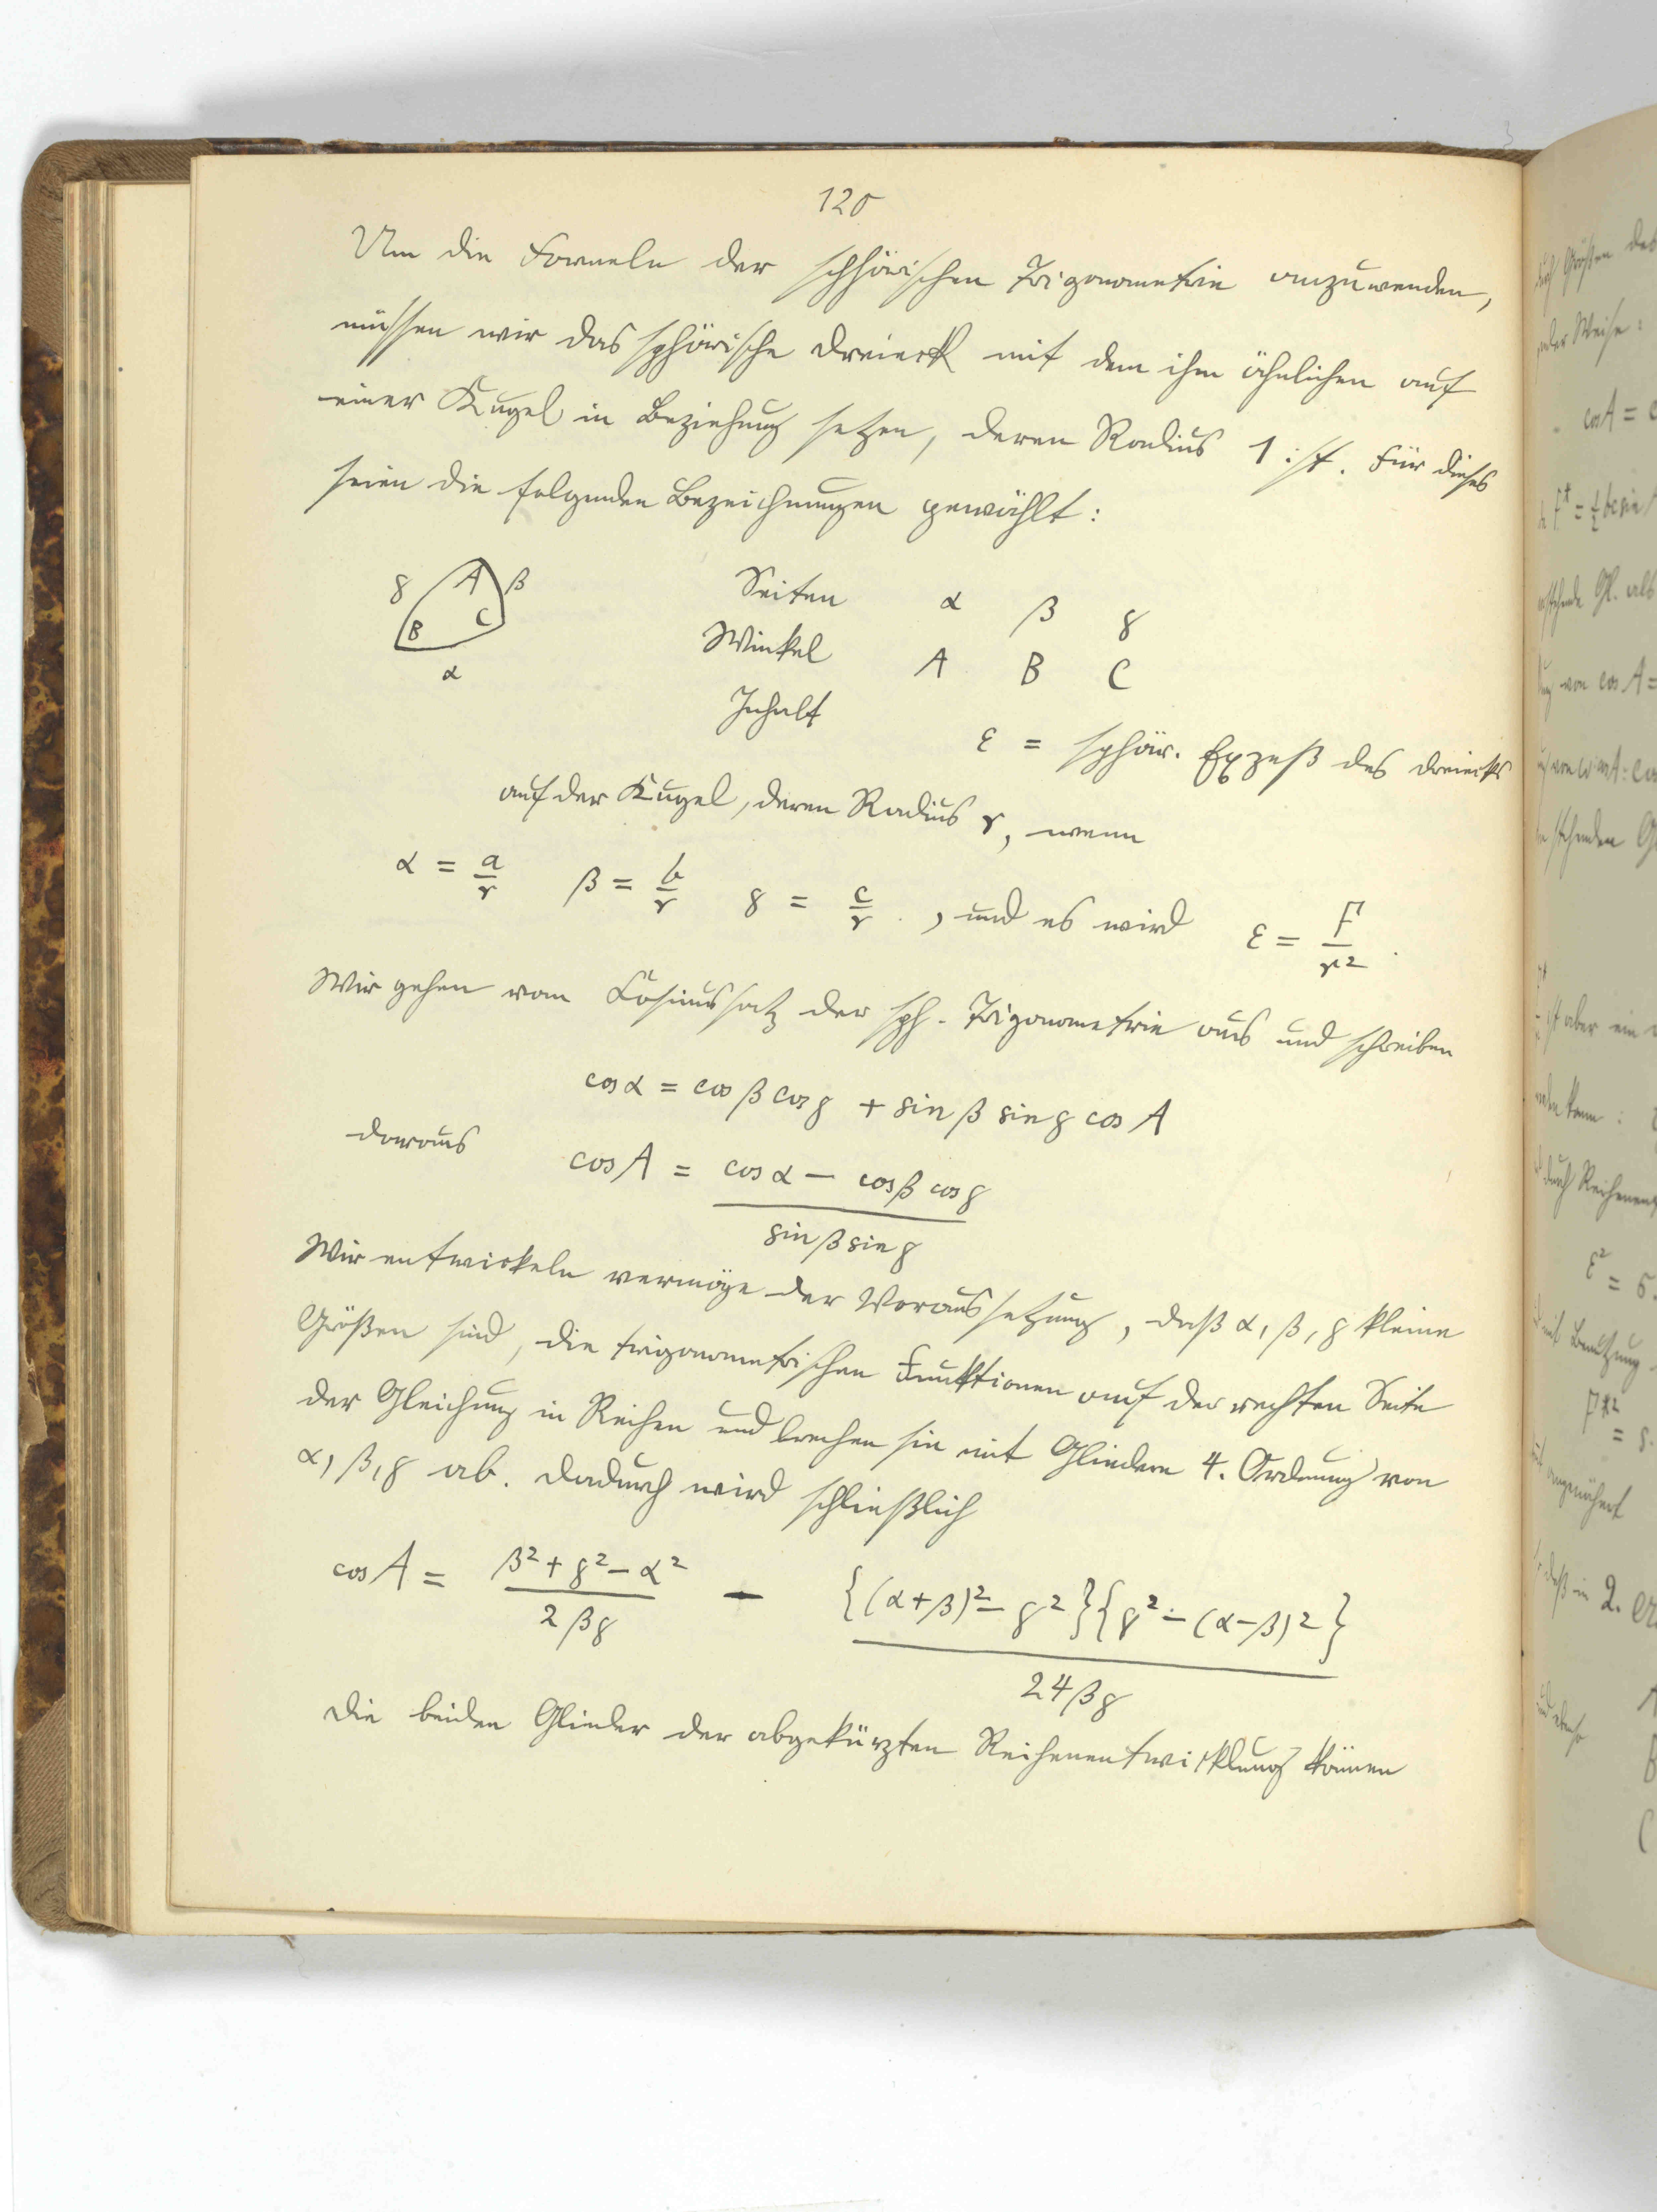 120
Um die Formeln der sphärischen Trigonometrie anzuwenden,
müssen wir das sphärische Dreieck mit dem ihm ähnlichen auf
einer Kugel in Beziehung setzen, deren Radius 1 ist. Für dieses
seien die folgenden Bezeichnungen gewählt:
γ A β
B C
α
Seiten α β γ
Winkel A B C
Inhalt ε = sphär. Exzeß des Dreiecks
auf der Kugel, deren Radius r, wenn
α = a/r β = b/r γ = c/r , und es wird ε = F/r²
Wir gehen vom Cosinussatz der sph. Trigonometrie aus und schreiben
cos α = cos β cos γ + sin β sin γ cos A
daraus cos A = (cos α − cos β cos γ) / (sin β sin γ)
Wir entwickeln vermöge der Voraussetzung, daß α, β, γ kleine
Größen sind, die trigonometrischen Funktionen auf der rechten Seite
der Gleichung in Reihen und brechen sie mit Gliedern 4. Ordnung von
α, β, γ ab. Dadurch wird schließlich
cos A = (β² + γ² − α²) / (2βγ) − {(α+β)² − γ²}{γ² − (α−β)²} / (24βγ)
Die beiden Glieder der abgekürzten Reihenentwicklung können